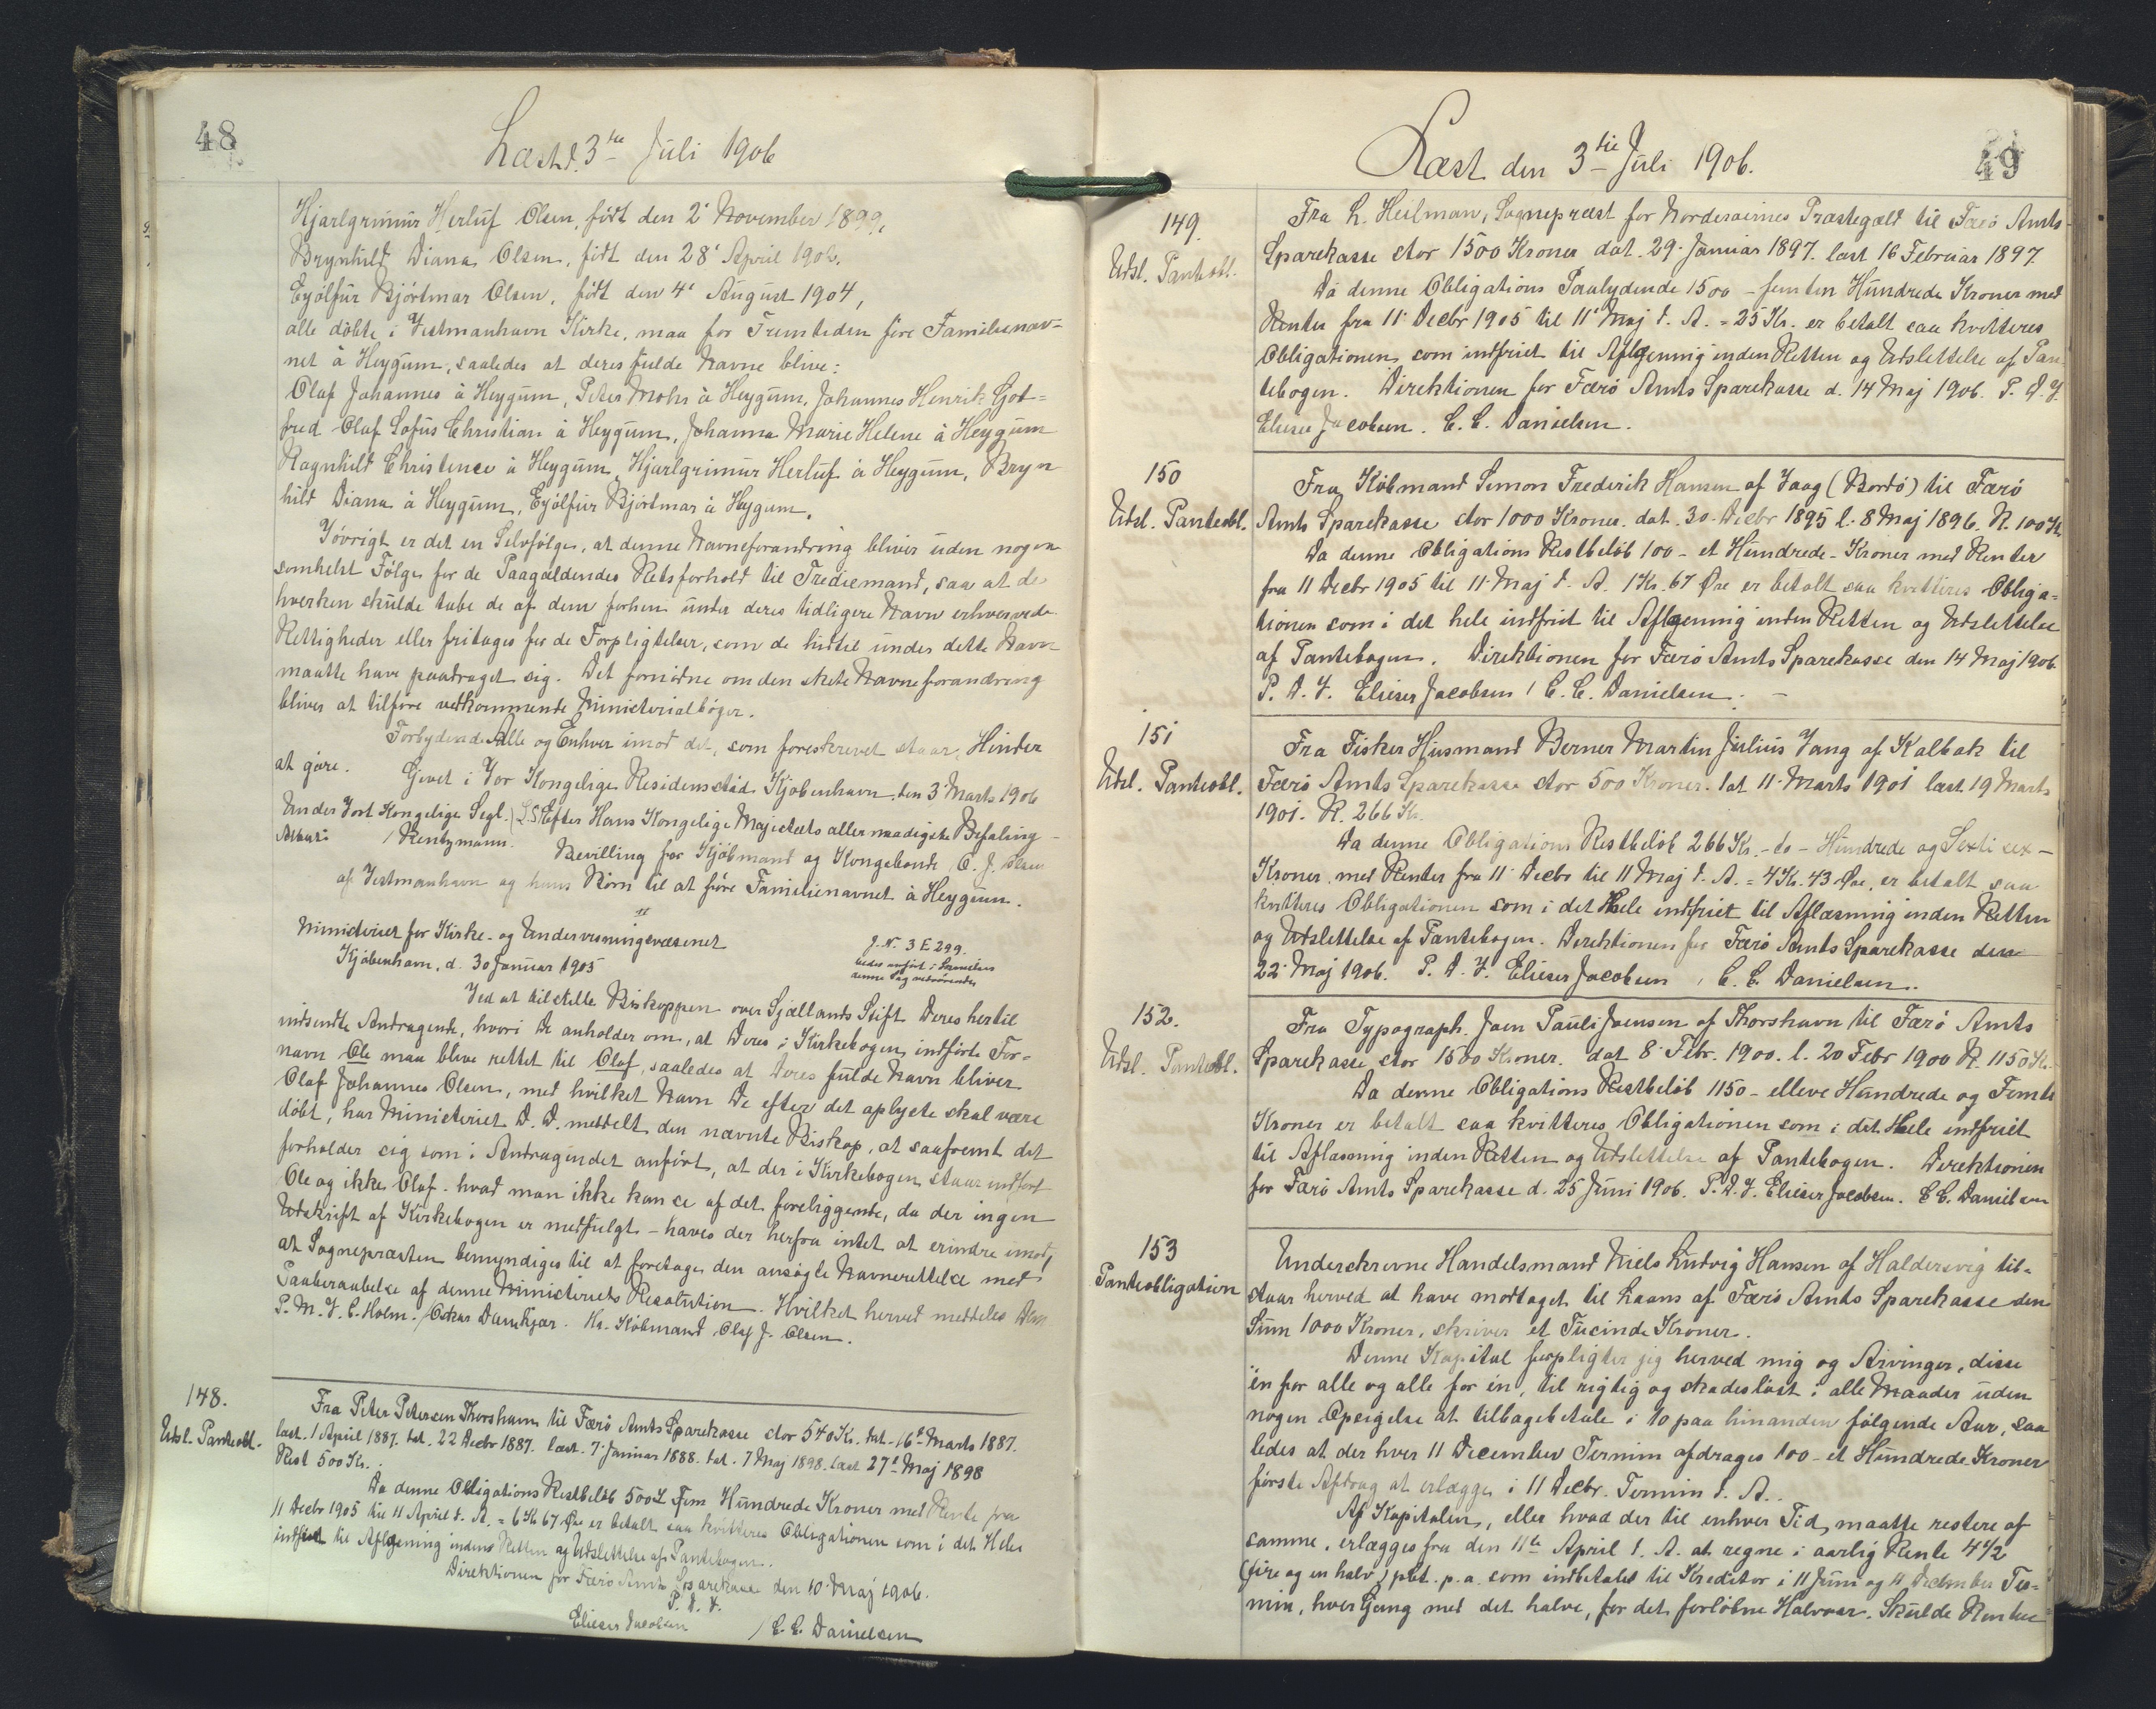 48
Læst d. 3die Juli 1906
Hjarlgrimur Herluf Olsen, født den 2' November 1899,
Brynhild Diana Olsen, født den 28' April 1902.
Eyólfur Bjórtmar Olsen, født den 4' August 1904,
alle döbte i Vestmanhavn Kirke, maa for Fremtiden före Familienav=
net à Heygum, saaledes at deres fulde Navne blive:
Olaf Johannes à Heygum, Peter Mohr à Heygum, Johannes Henrik Got=
fred Olaf Lofus Christian à Heygum, Johanna Marie Helene à Heygum
Ragnhild Christence à Heygum, Hjarlgrimur Herluf à Heygum, Bryn
hild Diana à Heygum, Eyólfur Bjórtmar à Heygum.
Jövrigt er det en Selvfölge, at denne Navneforandring bliver uden nogen
somhelst Fölge for de Paagældendes Retsforhold til Trediemand, saa at de
hverken skulde tabe de af dem forhen under deres tidligere Navn erhvervede
Rettigheder eller fritages for de Forpligtelser, som de hidtil under dette Navn
maatte have paadraget sig. Det fornödne om den skete Navneforandring
bliver at tilföre vedkommende Ministerialböger.
Forbydende Alle og Enhver imod det, som foreskrevet staar, Hinder
at göre. Givet i Vor Kongelige Residensstad Kjöbenhavn, den 3 Marts 1906
Under Vort Kongelige Segl. (L.S.) Efter Hans Kongelige Majestæts allernaadigste Befaling
/Rentzmann. Bevilling for Kjöbmand og Kongsbonde O. J. Olsen
af Vestmanhavn og hans Börn til at före Familienavnet à Heygum.
Ministeriet for Kirke- og Undervisningsvæsenet
Kjöbenhavn, d. 30 Januar 1905
J. No. 3 E 299.
bedes anført i Skrivelser
denne Sag vedrørende
Ved at tilstille Biskoppen over Sjællands Stift Deres hertil
indsendte Andragende, hvori De anholder om, at Deres i Kirkebogen indförte For=
navn Ole maa blive rettet til Olaf, saaledes at Deres fulde Navn bliver
Olaf Johannes Olsen, med hvilket Navn De efter det oplyste skal være
döbt, har Ministeriet D. D. meddelt den nævnte Biskop, at saafremt det
forholder sig som i Andragendet anfört, at der i Kirkebogen staar indfört
Ole og ikke Olaf - hvad man ikke kan se af det foreliggende, da der ingen
Udskrift af Kirkebogen er medfulgt - haves der herfra intet at erindre imod,
at Sognepræsten bemyndiges til at foretage den ansögte Navnerettelse med
Paaberaabelse af denne Ministeriets Resolution. Hvilket herved meddeles Dem
P. M. V. C. Holm. /Oskar Damkjær. Hr. Köbmand Olaf J. Olsen.
148.
Udsl. Panteobl.
Fra Peter Petersen Thorshavn til Færö Amts Sparekasse stor 540 Kr. dat. 16d Marts 1887.
læst. 1 April 1887. dat. 22 Decbr 1887. læst. 7 Januar 1888. dat. 7 Maj 1898. læst 27d Maj 1898
Rest 500 Kr.
Da denne Obligations Restbelöb 500 - Fem Hundrede Kroner med Rente fra
11 Decbr 1905 til 11 April d. A. = 6 Kr 67 Øre er betalt saa kvitteres Obligationen som i det Hele
indfriet til Aflæsning inden Retten og Udslettelse af Pantebogen.
Direktionen for Færö Amts Sparekasse den 10 Maj 1906.
P. D. V.
Elieser Jacobsen / C. C. Danielsen
49
Læst den 3die Juli 1906.
149.
Udsl. Panteobl.
Fra L. Heilman, Sognepræst for Norderöernes Præstegæld til Færö Amts
Sparekasse stor 1500 Kroner dat. 29 Januar 1897. læst 16 Februar 1897.
Da denne Obligations Paalydende 1500 - femten Hundrede Kroner med
Renter fra 11' Decbr 1905 til 11' Maj d. A. = 25 Kr. er betalt saa kvitteres
Obligationen som indfriet til Aflæsning inden Retten og Udslettelse af Pan
tebogen. Direktionen for Færö Amts Sparekasse d. 14 Maj 1906. P. D. V.
Elieser Jacobsen. C. C. Danielsen.
150
Udsl. Panteobl.
Fra Köbmand Simon Frederik Hansen af Vaag (Bordö) til Færö
Amts Sparekasse stor 1000 Kroner. dat. 30 Decbr 1895 l. 8 Maj 1896. R. 100 Kr
Da denne Obligations Restbelöb 100 - et Hundrede - Kroner med Renter
fra 11 Decbr 1905 til 11 Maj d. A. 1 Kr. 67 Øre er betalt saa kvitteres Obliga=
tionen som i det hele indfriet til Aflæsning inden Retten og Udslettelse
af Pantebogen. Direktionen for Færö Amts Sparekasse den 14 Maj 1906
P. D. V. Elieser Jacobsen / C. C. Danielsen. -
151
Udsl. Panteobl.
Fra Fisker Husmand Berner Martin Julius Vang af Kalbak til
Færö Amts Sparekasse stor 500 Kroner. dat 11 Marts 1901 læst 19 Marts
1901. R. 266 Kr.
Da denne Obligations Restbelöb 266 Kr. - to - Hundrede og Sexti sex -
Kroner med Renter fra 11 Decbr til 11 Maj d. A. = 4 Kr. 43 Øre, er betalt saa
kvitteres Obligationen som i det Hele indfriet til Aflæsning inden Retten
og Udslettelse af Pantebogen. Direktionen for Færö Amts Sparekasse den
22 Maj 1906. P. D. V. Elieser Jacobsen / C. C. Danielsen.
152.
Udsl. Panteobl.
Fra Typograph. Joen Pauli Joensen af Thorshavn til Færö Amts
Sparekasse stor 1500 Kroner. dat 8 Febr. 1900. l. 20 Febr 1900 R. 1150 Kr.
Da denne Obligations Restbelöb 1150 - elleve Hundrede og Femti
Kroner er betalt saa kvitteres Obligationen som i det Hele indfriet
til Aflæsning inden Retten og Udslettelse af Pantebogen. Direktionen
for Færö Amts Sparekasse d. 25 Juni 1906. P. D. V. Elieser Jacobsen. C. C. Danielsen
153
Panteobligation
Underskrevne Handelsmand Niels Ludvig Hansen af Haldersvig til=
staar herved at have modtaget til Laans af Færö Amts Sparekasse den
Sum 1000 Kroner, skriver et Tusinde Kroner.
Denne Kapital forpligter jeg herved mig og Arvinger, disse
én for alle og alle for én, til rigtig og skadeslöst i alle Maader uden
nogen Opsigelse at tilbagebetale i 10 paa hinanden fölgende Aar, saa
ledes at der hver 11 December Termin afdrages 100 - et Hundrede Kroner
förste Afdrag at erlægge i 11 Decbr. Termin d. A.
Af Kapitalen, eller hvad der til enhver Tid maatte restere af
samme, erlægges fra den 11te April d. A. at regne i aarlig Rente 4 1/2
(fire og en halv) pCt. p. a. som indbetales til Kreditor i 11 Juni og 11 December Ter=
min, hver Gang med det halve, for det forløbne Halvaar. Skulde Renten